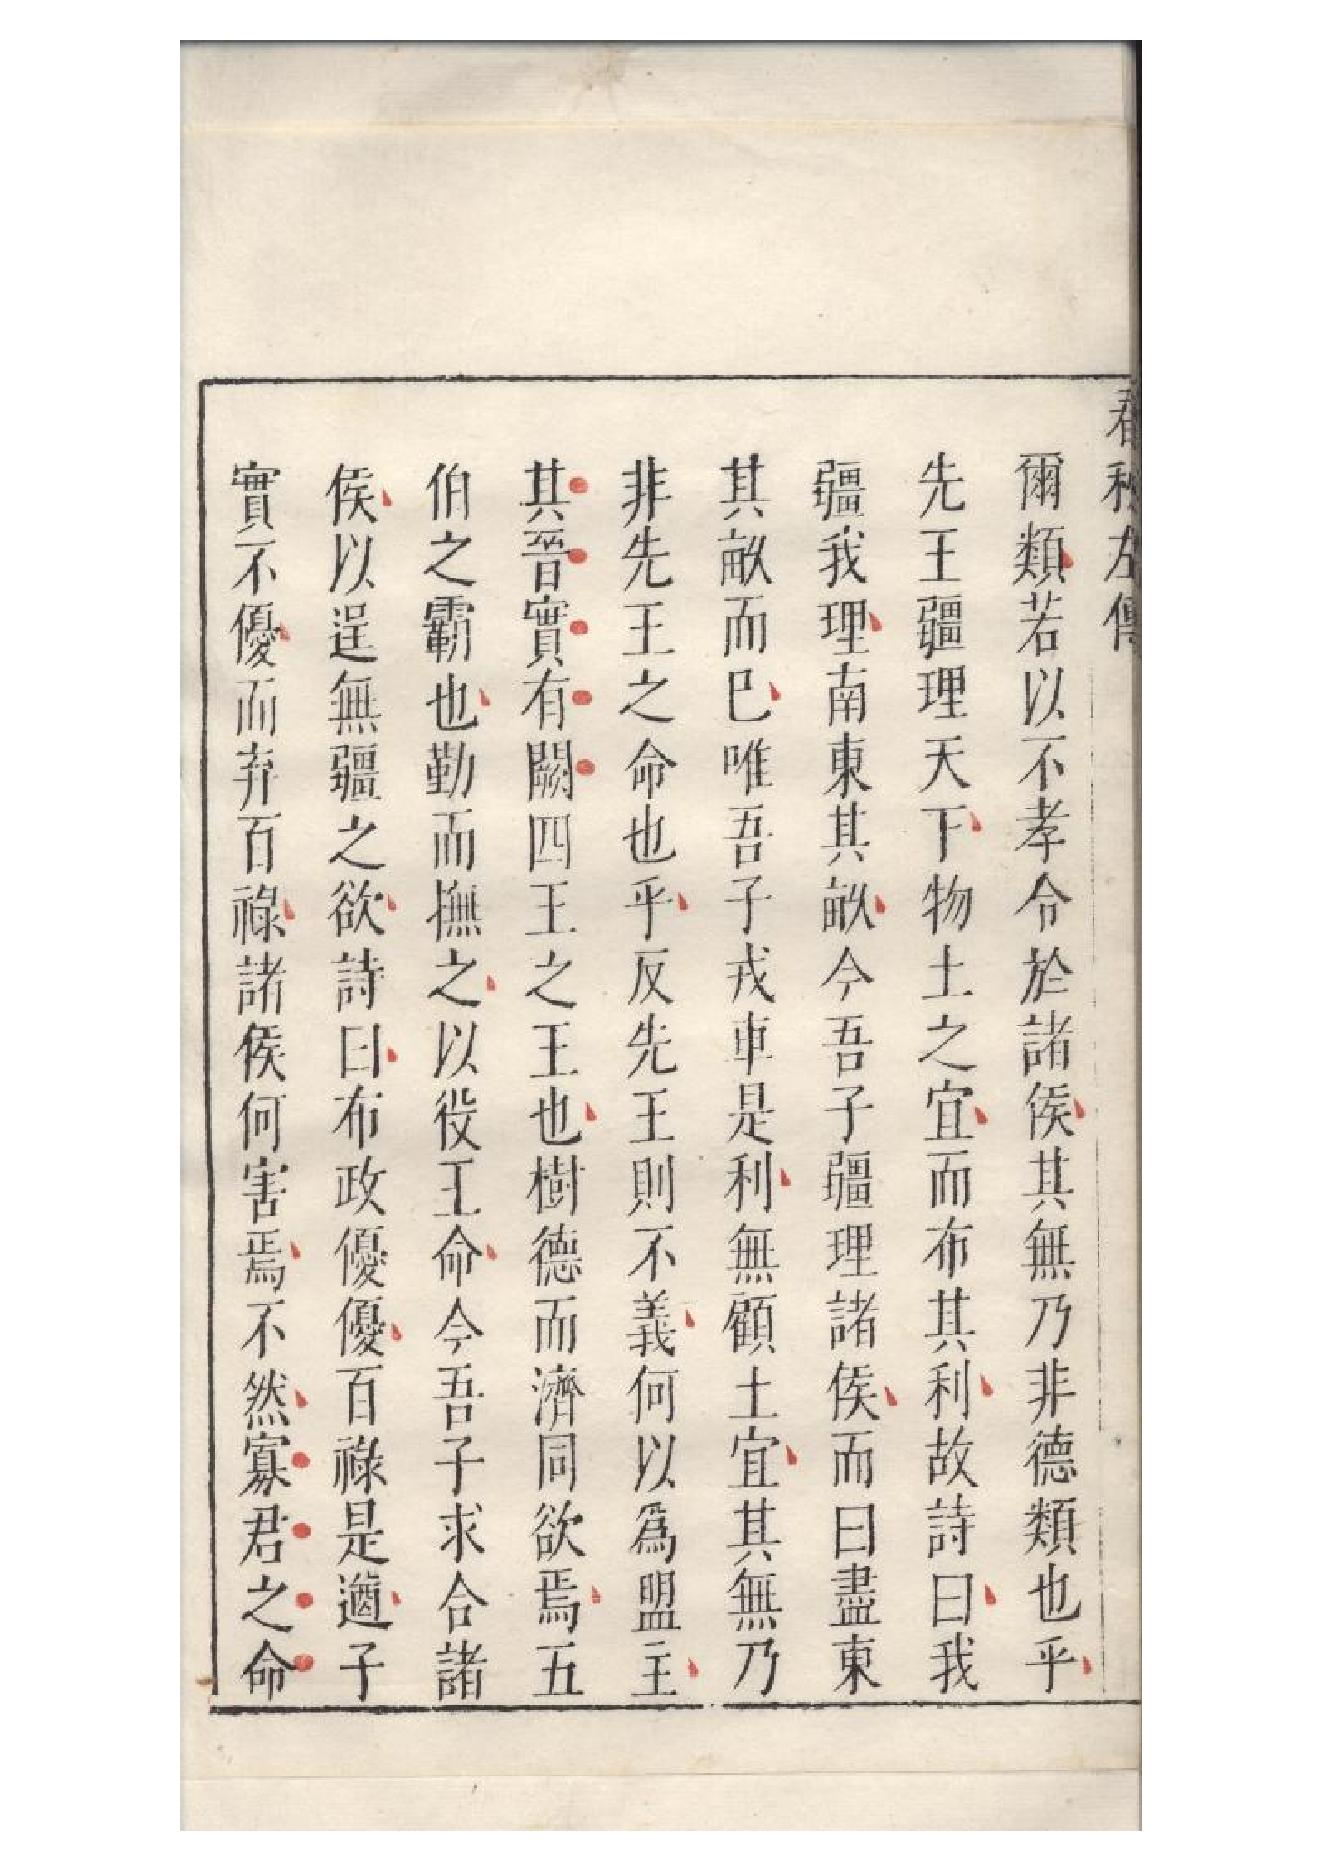 春秋左傳
爾類若以不孝令於諸侯其無乃非德類也乎
先王疆理天下物土之宜而布其利故詩曰我
疆我理南東其畝今吾子疆理諸侯而曰盡東
其畝而已唯吾子戎車是利無顧土宜其無乃
非先王之命也乎反先王則不義何以為盟主
其晉實有闕四王之王也樹德而濟同欲焉五
伯之霸也勤而撫之以役王命今吾子求合諸
侯以逞無疆之欲詩曰布政優優百祿是遒子
實不優而弃百祿諸侯何害焉不然寡君之命